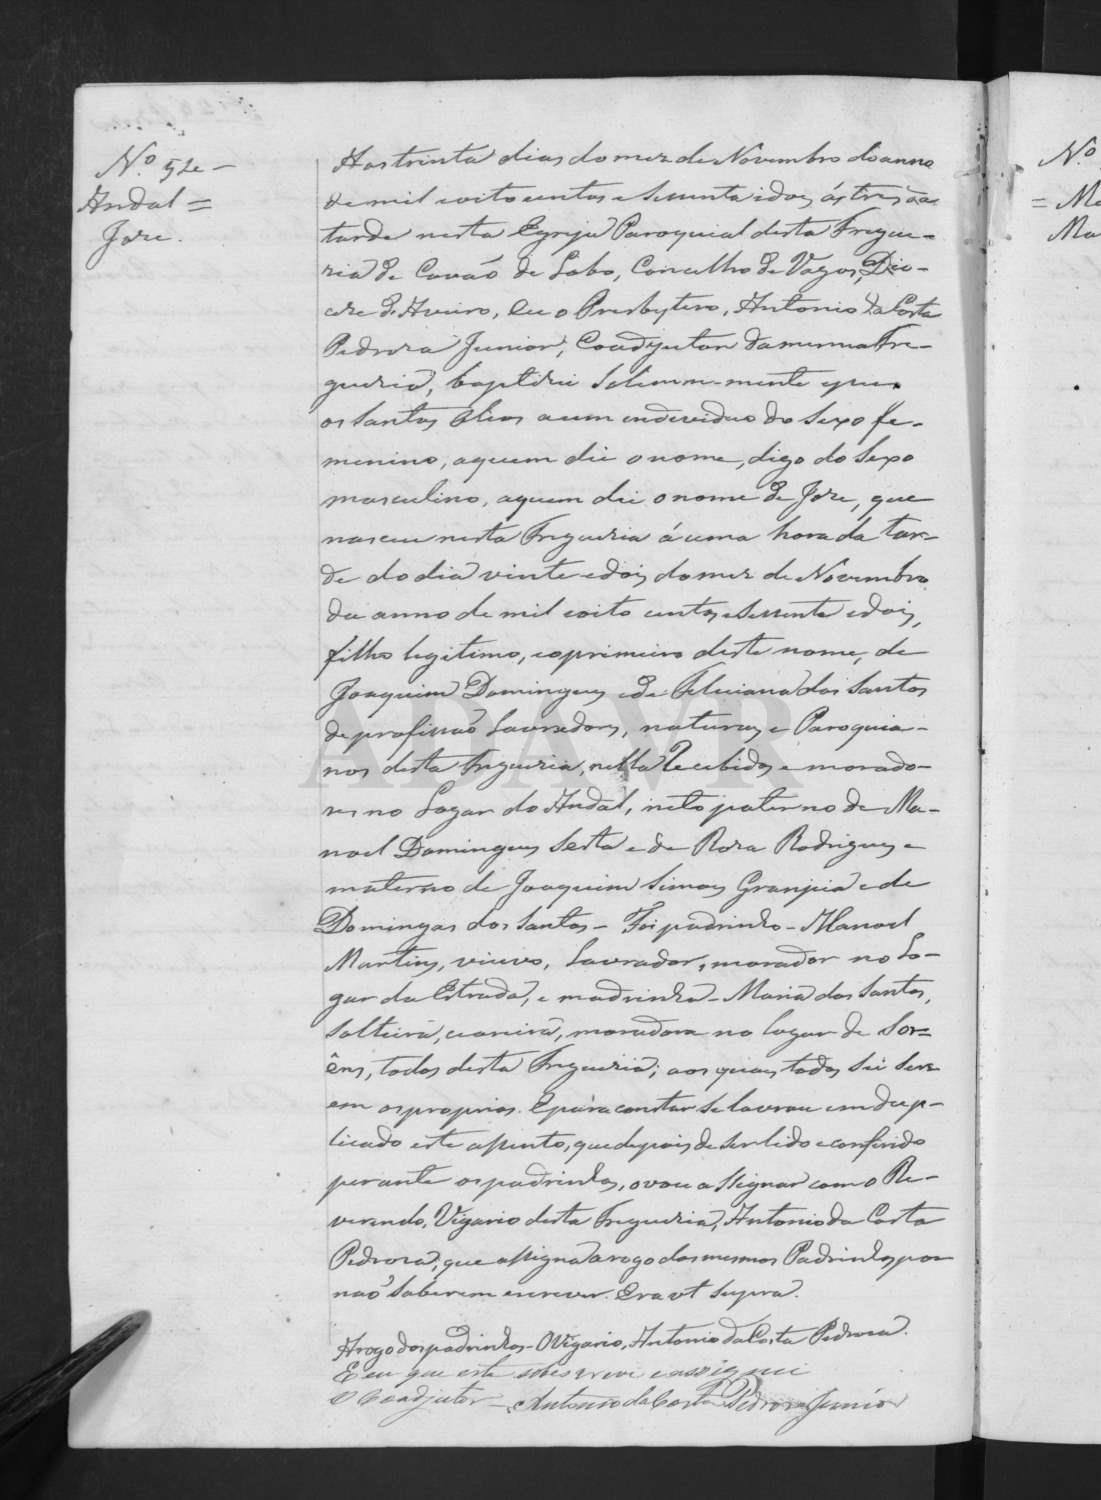 Nº 52 -
Andal =
Joze.
Aos trinta dias do mez de Novembro do anno
de mil e oito centos e sessenta e dois, ás tres da
tarde nesta Egreja Paroquial desta Fregue-
zia de Covaõ de Lobo, Concelho de Vagos, Dio-
cese de Aveiro, Eu o Presbytero, Antonio da Costa
Pedroza Junior, Coadjutor da mesma Fre-
guezia, baptizei Solemnemente e puz
os Santos Oleos a um endeviduo do Sexo fe-
menino, aquem dei o nome, digo do Sexo
masculino, aquem dei o nome de Joze, que
nasceu nesta Freguezia á uma hora da tar-
de do dia vinte e dois do mez de Novembro
do anno de mil e oito centos e sessenta e dois,
filho legitimo, e o primeiro deste nome, de
Joaquim Domingues e de Feleciana dos Santos
de profissaõ Lavradores, naturaes e Paroquia-
nos desta Freguezia, nella Recebidos e morado-
res no Lugar do Andal, neto paterno de Ma-
noel Domingues Sesta e de Roza Rodrigues e
materno de Joaquim Simoes Granjeia e de
Domingas dos Santos - Foi padrinho - Manoel
Martins, viuvo, Lavrador, morador no Lo-
gar da Estrada, e madrinha - Maria dos Santos,
Solteira, moradora no lugar de Sor=
êns, todos desta Freguezia; aos quaes todos Sei Ser
em os proprios. E para constar se lavrou em dup-
licado este assento, que depois de ser lido e conferido
perante os padrinhos, o vou assignar com o Re-
verendo, Vigario desta Freguezia, Antonio da Costa
Pedroza, que assigna a rogo dos mesmos Padrinhos por
naõ Saberem escrever. Era vt supra.
A rogo dos padrinhos - O Vigario, Antonio da Costa Pedroza.
E eu que este subescrevi e assignei
O Coadjutor - Antonio da Costa Pedroza Junior
Nº
= Ma
Ma
ADAVR